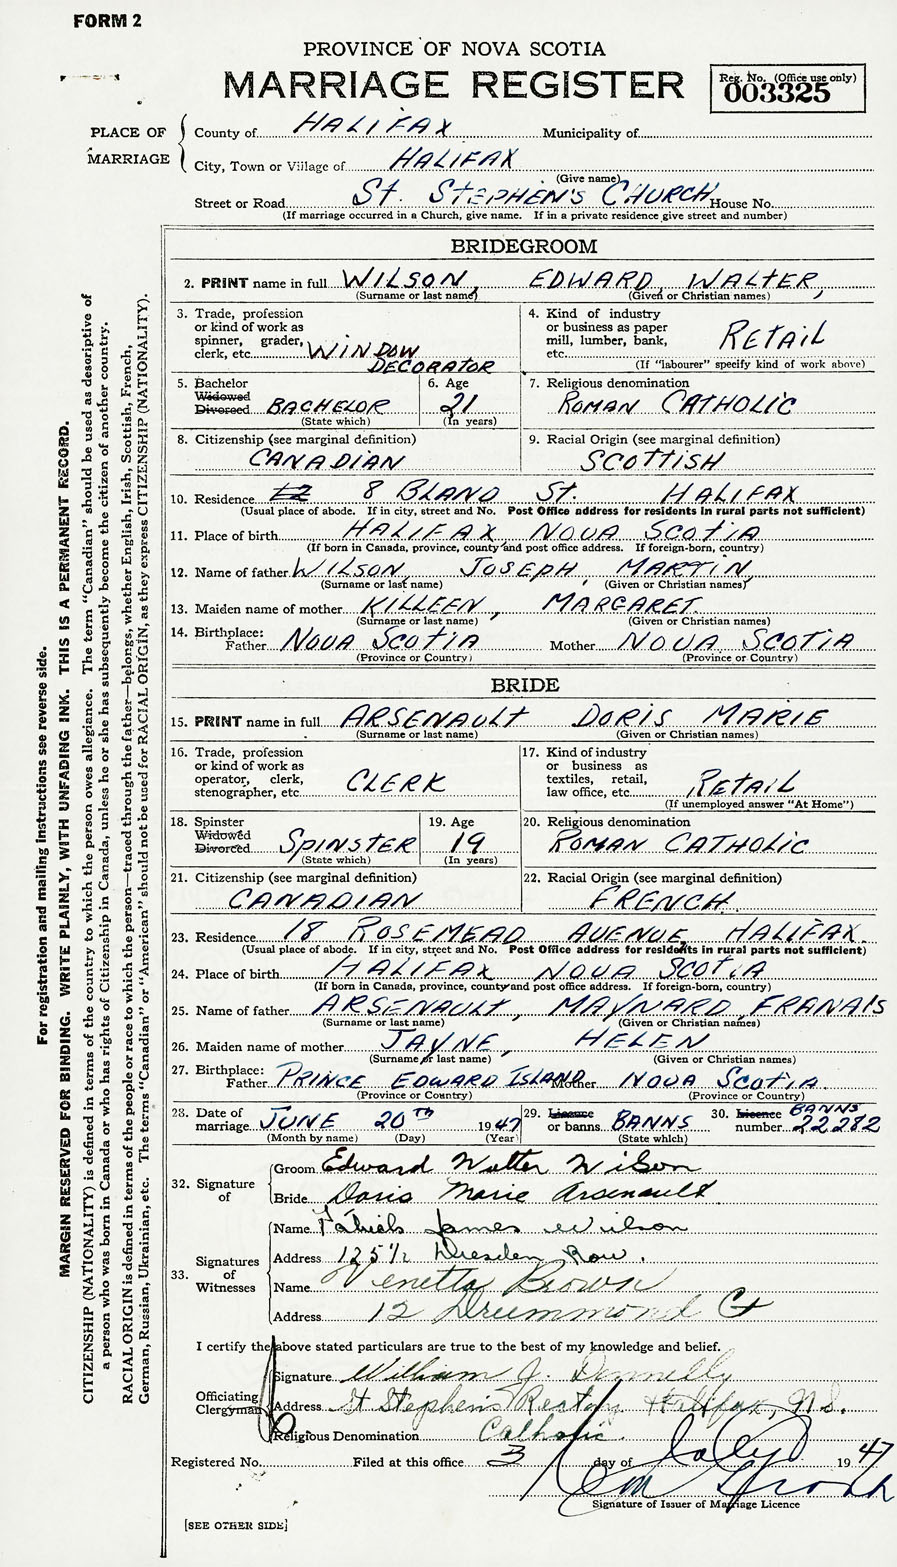 FORM 2
PROVINCE OF NOVA SCOTIA
MARRIAGE REGISTER
Reg. No. (Office use only)
003325
PLACE OF MARRIAGE
County of HALIFAX Municipality of
City, Town or Village of HALIFAX
(Give name)
Street or Road St. STEPHEN'S CHURCH House No.
(If marriage occurred in a Church, give name. If in a private residence give street and number)
BRIDEGROOM
2. PRINT name in full WILSON, EDWARD, WALTER,
(Surname or last name) (Given or Christian names)
3. Trade, profession or kind of work as spinner, grader, clerk, etc. WINDOW DECORATOR
4. Kind of industry or business as paper mill, lumber, bank, etc. RETAIL
(If "labourer" specify kind of work above)
5. Bachelor Widowed Divorced BACHELOR
(State which)
6. Age 21
(In years)
7. Religious denomination
ROMAN CATHOLIC
8. Citizenship (see marginal definition)
CANADIAN
9. Racial Origin (see marginal definition)
SCOTTISH
10. Residence 8 BLAND St. HALIFAX
(Usual place of abode. If in city, street and No. Post Office address for residents in rural parts not sufficient)
11. Place of birth HALIFAX NOVA SCOTIA
(If born in Canada, province, county and post office address. If foreign-born, country)
12. Name of father WILSON, JOSEPH, MARTIN,
(Surname or last name) (Given or Christian names)
13. Maiden name of mother KILLEEN, MARGARET
(Surname or last name) (Given or Christian names)
14. Birthplace:
Father NOVA SCOTIA Mother NOVA SCOTIA
(Province or Country) (Province or Country)
BRIDE
15. PRINT name in full ARSENAULT DORIS MARIE
(Surname or last name) (Given or Christian names)
16. Trade, profession or kind of work as operator, clerk, stenographer, etc CLERK
17. Kind of industry or business as textiles, retail, law office, etc. RETAIL
(If unemployed answer "At Home")
18. Spinster Widowed Divorced SPINSTER
(State which)
19. Age 19
(In years)
20. Religious denomination
ROMAN CATHOLIC
21. Citizenship (see marginal definition)
CANADIAN
22. Racial Origin (see marginal definition)
FRENCH
23. Residence 18 ROSEMEAD AVENUE, HALIFAX.
(Usual place of abode. If in city, street and No. Post Office address for residents in rural parts not sufficient)
24. Place of birth HALIFAX NOVA SCOTIA
(If born in Canada, province, county and post office address. If foreign-born, country)
25. Name of father ARSENAULT, MAYNARD, FRANAIS
(Surname or last name) (Given or Christian names)
26. Maiden name of mother JAYNE, HELEN
(Surname or last name) (Given or Christian names)
27. Birthplace:
Father PRINCE EDWARD ISLAND Mother NOVA SCOTIA.
(Province or Country) (Province or Country)
28. Date of marriage JUNE 20TH 1947
(Month by name) (Day) (Year)
29. Licence or banns BANNS
(State which)
30. Licence number BANNS 22282
32. Signature of
Groom Edward Walter Wilson
Bride Doris Marie Arsenault
33. Signatures of Witnesses
Name Patrick James Wilson
Address 125 1/2 Dresden Row.
Name Venetta Brown
Address 12 Drummond Ct
I certify the above stated particulars are true to the best of my knowledge and belief.
Officiating Clergyman
Signature William J. Donnelly
Address St Stephen's Rectory Halifax, N.S.
Religious Denomination Catholic.
Registered No. Filed at this office 3 day of July 1947
Signature of Issuer of Marriage Licence
[SEE OTHER SIDE]
For registration and mailing instructions see reverse side.
MARGIN RESERVED FOR BINDING. WRITE PLAINLY, WITH UNFADING INK. THIS IS A PERMANENT RECORD.
CITIZENSHIP (NATIONALITY) is defined in terms of the country to which the person owes allegiance. The term "Canadian" should be used as descriptive of
a person who was born in Canada or who has rights of Citizenship in Canada, unless he or she has subsequently become the citizen of another country.
RACIAL ORIGIN is defined in terms of the people or race to which the person—traced through the father—belongs, whether English, Irish, Scottish, French,
German, Russian, Ukrainian, etc. The terms "Canadian" or "American" should not be used for RACIAL ORIGIN, as they express CITIZENSHIP (NATIONALITY).